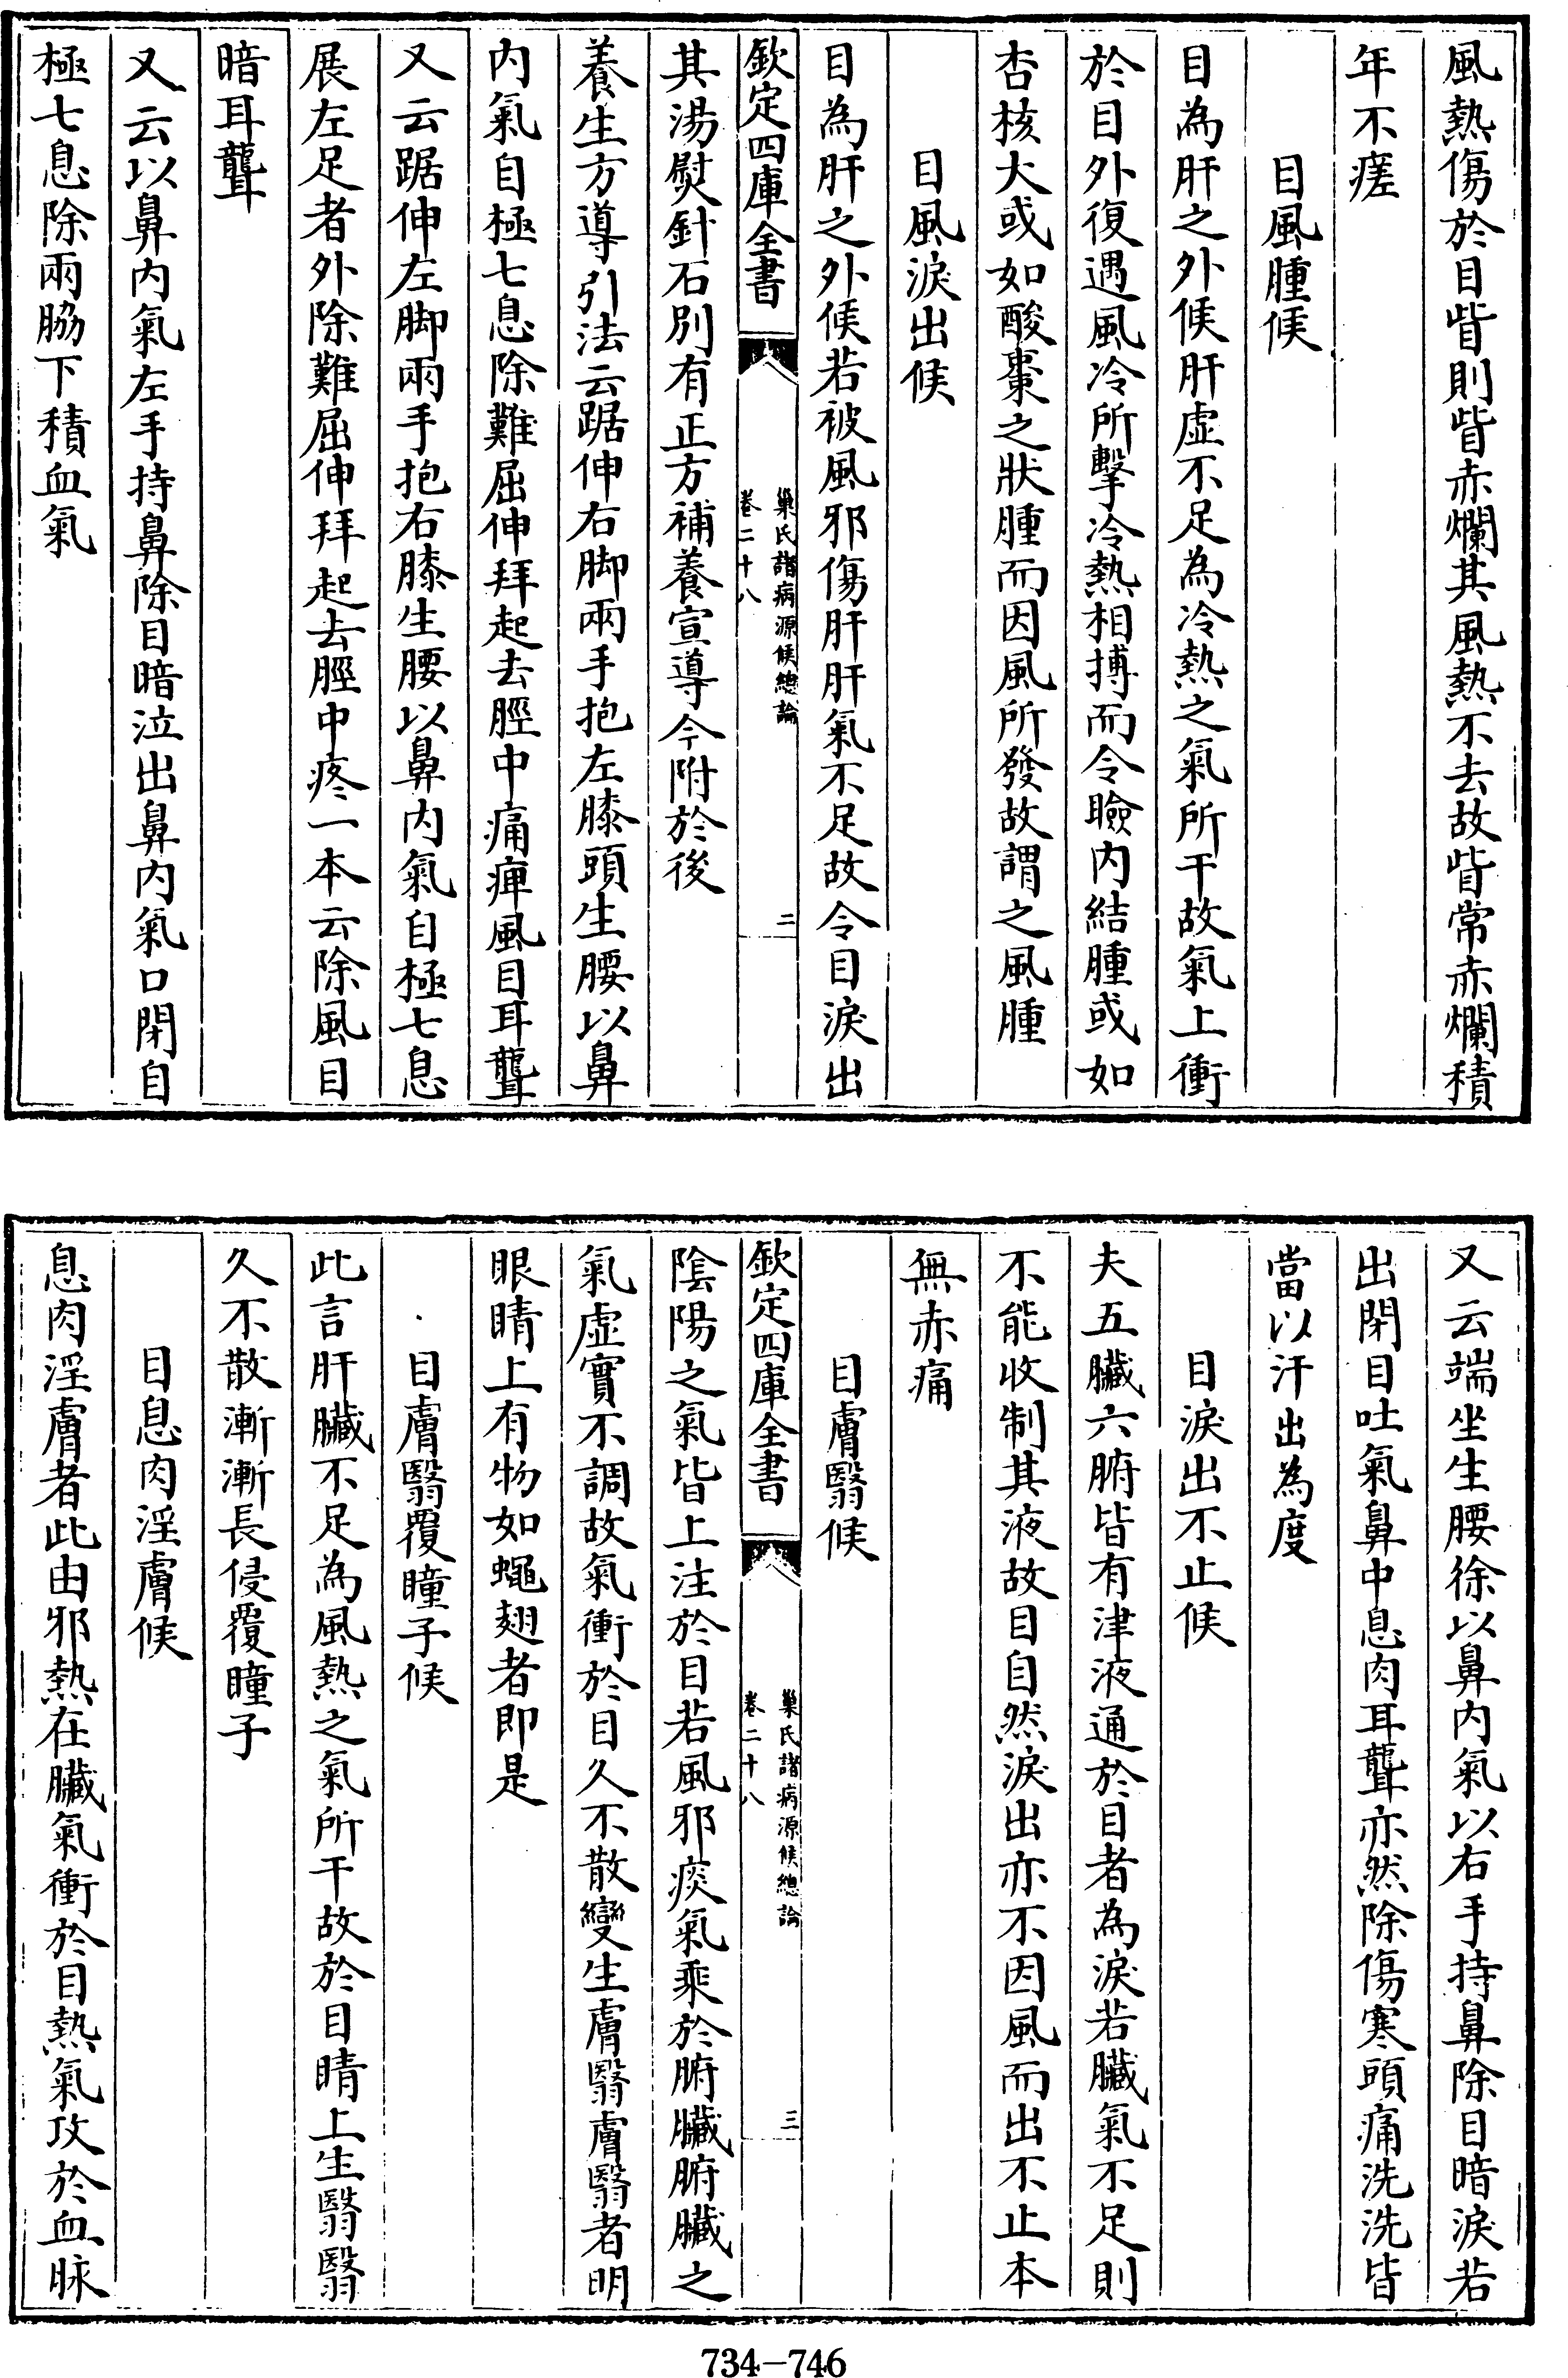 風熱傷於目眥則眥赤爛其風熱不去故眥常赤爛積
年不瘥
目風腫候
目為肝之外候肝虛不足為冷熱之氣所干故氣上衝
於目外復遇風冷所擊冷熱相搏而令瞼内結腫或如
杏核大或如酸棗之狀腫而因風所發故謂之風腫
目風淚出候
目為肝之外候若被風邪傷肝肝氣不足故令目淚出
欽定四庫全書
巢氏諸病源候總論
卷二十八
二
其湯熨針石別有正方補養宣導今附於後
養生方導引法云踞伸右脚兩手抱左膝頭生腰以鼻
内氣自極七息除難屈伸拜起去脛中痛痺風目耳聾
又云踞伸左脚兩手抱右膝生腰以鼻内氣自極七息
展左足者外除難屈伸拜起去脛中疼一本云除風目
暗耳聾
又云以鼻内氣左手持鼻除目暗泣出鼻内氣口閉自
極七息除兩脇下積血氣
又云端坐生腰徐以鼻内氣以右手持鼻除目暗淚若
出閉目吐氣鼻中息肉耳聾亦然除傷寒頭痛洗洗皆
當以汗出為度
目淚出不止候
夫五臟六腑皆有津液通於目者為淚若臟氣不足則
不能收制其液故目自然淚出亦不因風而出不止本
無赤痛
目膚翳候
欽定四庫全書
巢氏諸病源候總論
卷二十八
三
陰陽之氣皆上注於目若風邪痰氣乘於腑臟腑臟之
氣虛實不調故氣衝於目久不散變生膚翳膚翳者明
眼睛上有物如蠅翅者即是
目膚翳覆瞳子候
此言肝臟不足為風熱之氣所干故於目睛上生翳翳
久不散漸漸長侵覆瞳子
目息肉淫膚候
息肉淫膚者此由邪熱在臟氣衝於目熱氣攻於血脉
734-746